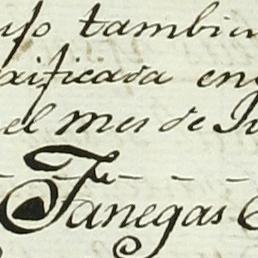 uso tambien
rificada en
el mes de Ju
Fanegas